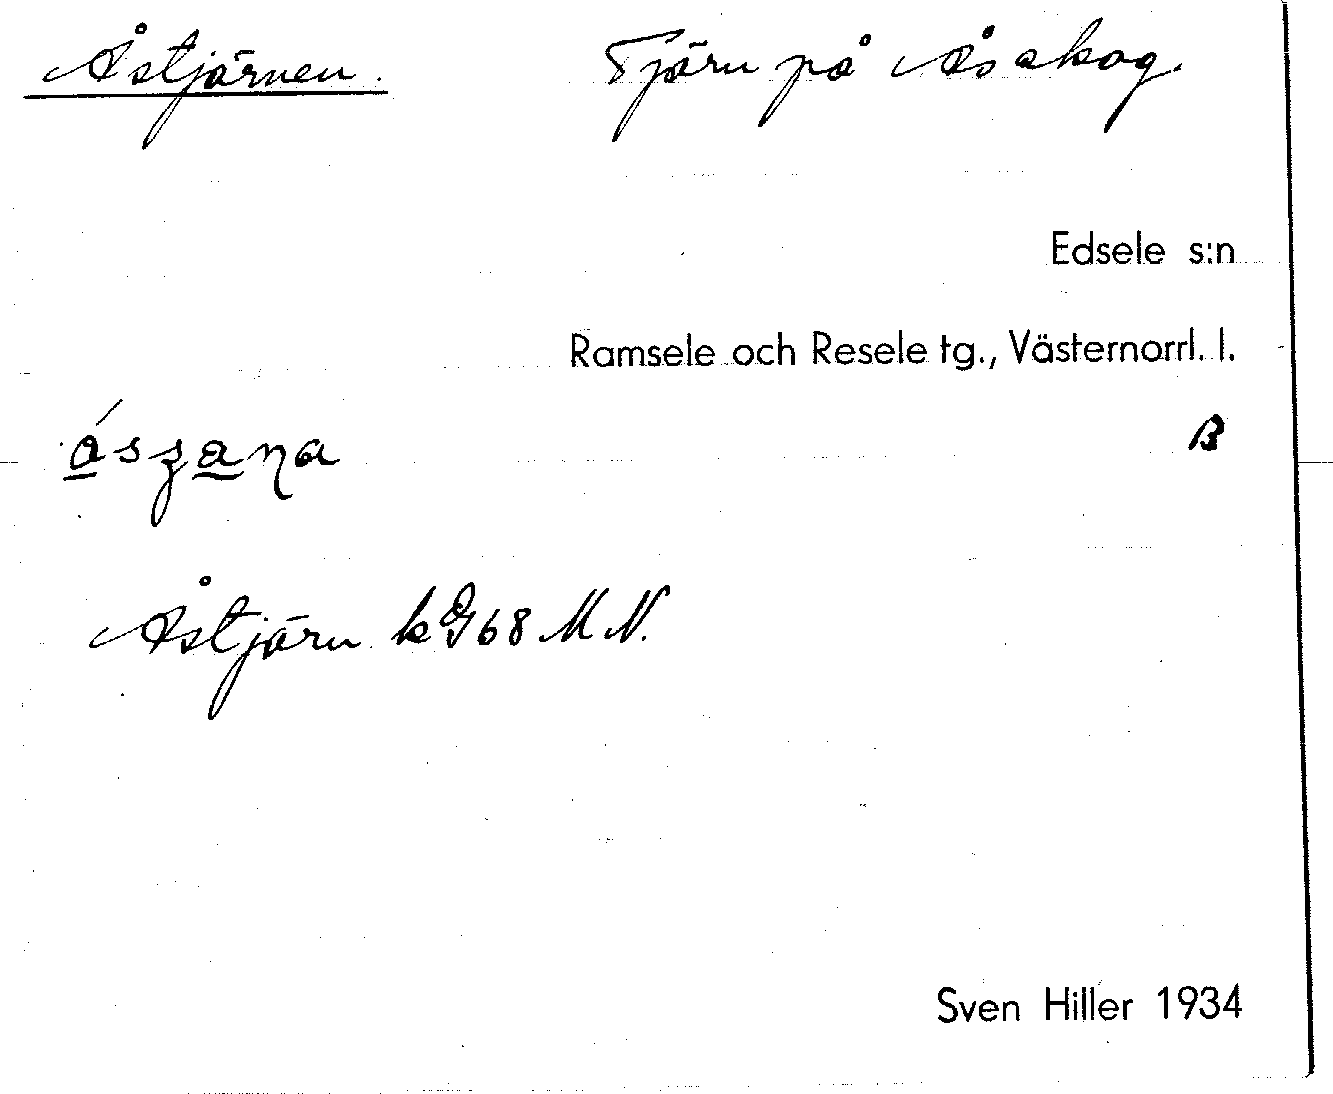 Åstjärnen. Tjärn på Ås skog.
Edsele s:n
Ramsele och Resele tg., Västernorrl. l.
B
Åstjärn k 968 M N.
Sven Hiller 1934